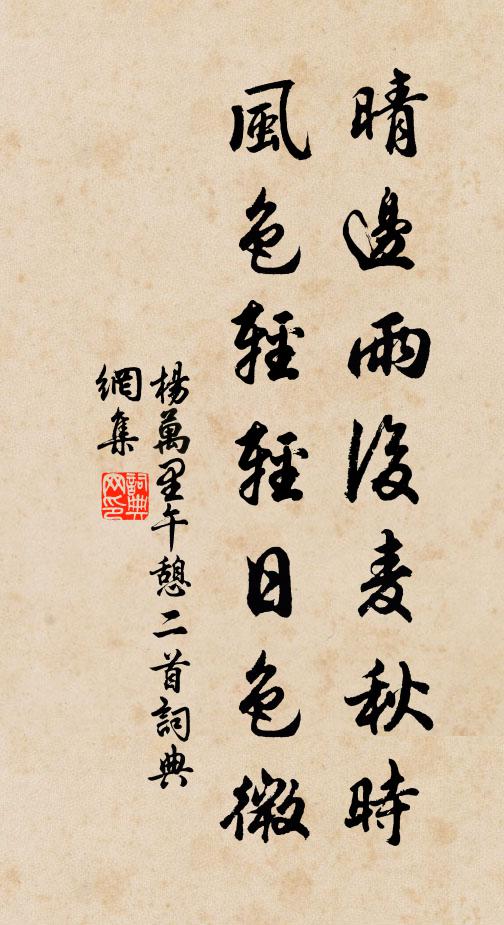 晴邊雨後麦秋時
風色輕輕日色微
楊萬里午憩二首詞典
網集
詞典
网印